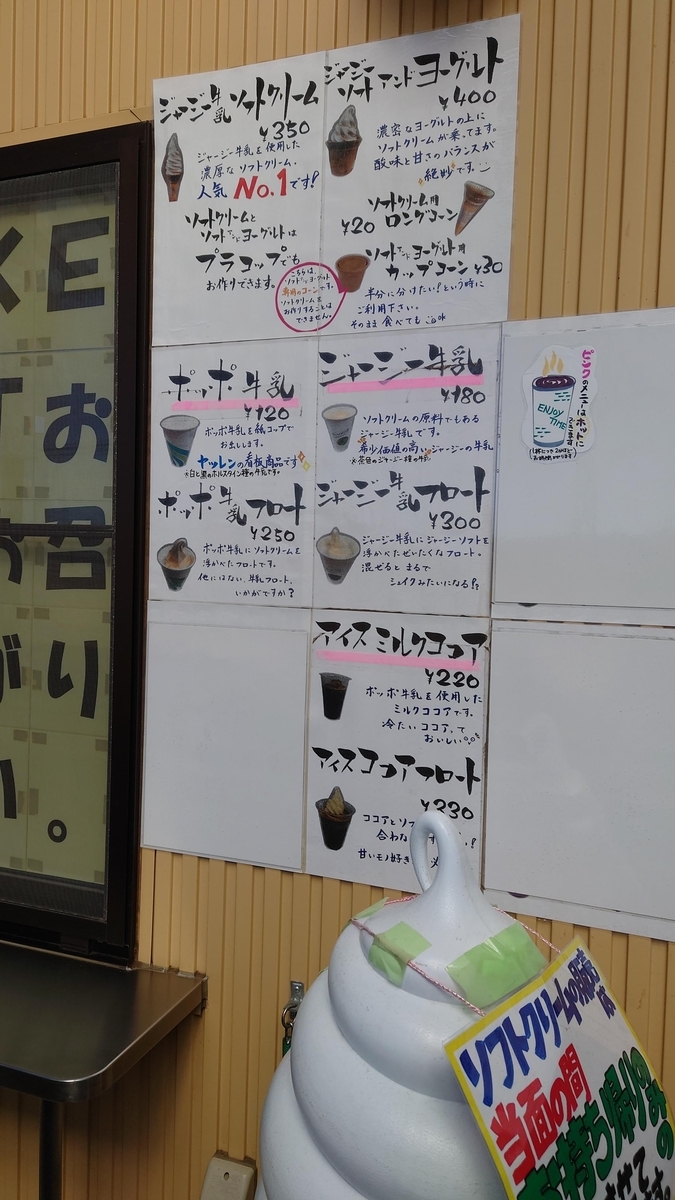 ジャージー牛乳ソフトクリーム
¥350
ジャージー牛乳を使用した
濃厚なソフトクリーム。
人気No.1です!
ソフトクリームと
ソフトアンドヨーグルトは
プラコップでも
お作りできます。
ジャージー
ソフトアンドヨーグルト
¥400
濃密なヨーグルトの上に
ソフトクリームが乗ってます。
酸味と甘さのバランスが
絶妙です。
ソフトクリーム用
ロングコーン
¥20
ソフトアンドヨーグルト用
カップコーン ¥30
こちらは、
ソフトアンドヨーグルト
専用のコーンです。
ソフトクリームを
お作りすることは
できません。
半分に分けたい!という時に
ご利用下さい。
そのまま食べても
ポッポ牛乳
¥120
ポッポ牛乳を紙コップで
お出しします。
ヤツレンの看板商品です
※白と黒のホルスタイン種の牛乳です。
ポッポ牛乳フロート
¥250
ポッポ牛乳にソフトクリームを
浮かべたフロートです。
他にはない、牛乳フロート、
いかがですか?
ジャージー牛乳
¥180
ソフトクリームの原料でもある
ジャージー牛乳です。
希少価値の高いジャージーの牛乳
※茶色のジャージー種の牛乳
ジャージー牛乳フロート
¥300
ジャージー牛乳にジャージーソフトを
浮かべたぜいたくなフロート。
混ぜるとまるで
シェイクみたいになる!?
ピンクのメニューはホットに
ENJOY
TIME
アイスミルクココア
¥220
ポッポ牛乳を使用した
ミルクココアです。
冷たいココアって
おいしい
アイスココアフロート
¥330
ココアとソフ
合わな
甘いモノ好き
KE
お
お召
がり
い。
ソフトクリームの販売は
当面の間
お持ち帰りのみの
させて
です。